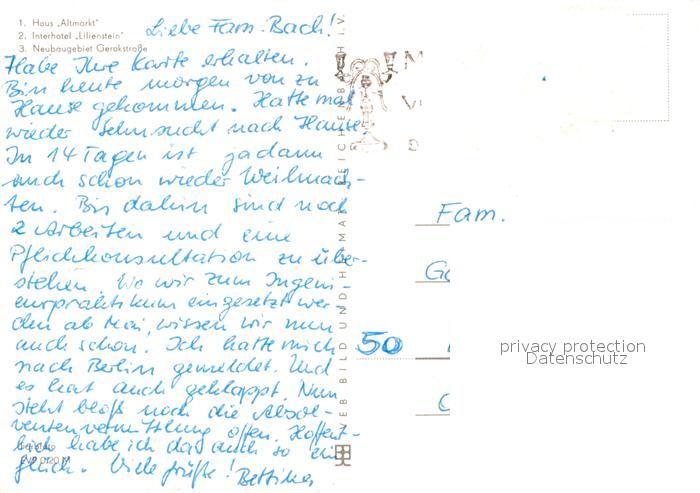 1. Haus „Altmarkt"
2. Interhotel „Lilienstein"
3. Neubaugebiet Gerokstraße
Liebe Fam. Bach!
Habe Ihre Karte erhalten.
Bin heute morgen von zu
Hause gekommen. Hatte mal
wieder Sehnsucht nach Hause
In 14 Tagen ist ja dann
auch schon wieder Weihnach-
ten. Bis dahin sind noch
2 Arbeiten und eine
Pflichtkonsultation zu über-
stehen. Wo wir zum Ingeni-
eurpraktikum eingesetzt wer-
den ab Mai, wissen wir nun
auch schon. Ich hatte mich
nach Berlin gemeldet. Und
es hat auch geklappt. Nun
steht bloß noch die Absol-
ventenvermittlung offen. Hoffent-
lich habe ich da auch so ein
Glück. Viele Grüße! Bettina
BILD UND HEIMAT REICHENBACH I.V.
Fam.
50
privacy protection
Datenschutz